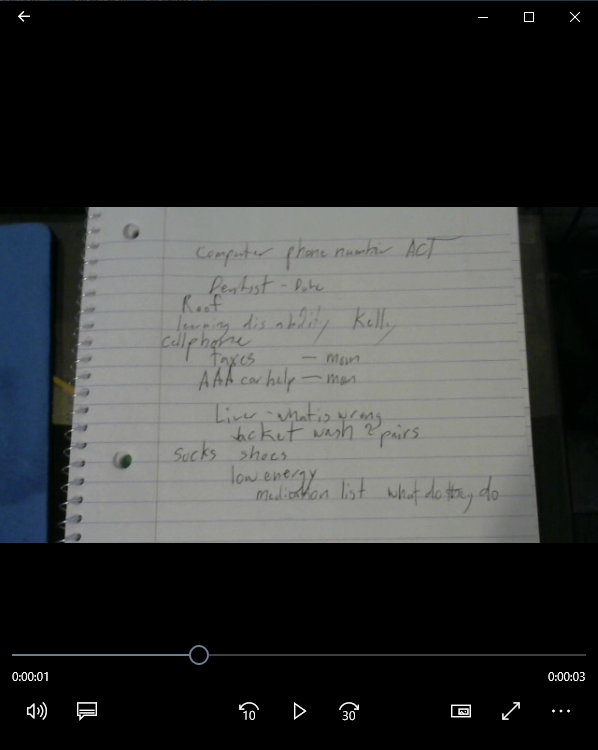 computer phone number ACT
Dentist - Date
Roof
learning disability Kelly
cellphone
taxes — mom
AAA car help — mom
Liver - what is wrong
Jacket wash 2 pairs
socks shoes
low energy
medication list what do they do
0:00:01 0:00:03
10 30